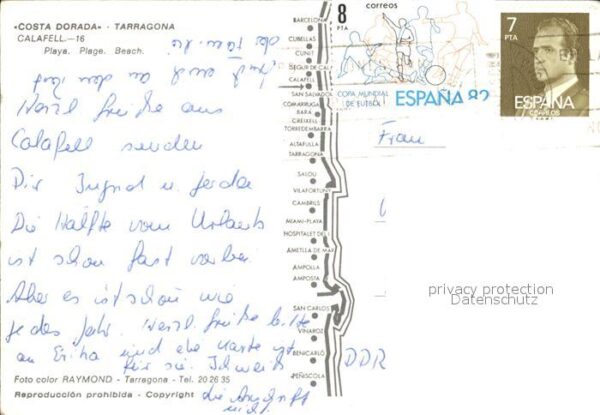 «COSTA DORADA» - TARRAGONA
CALAFELL.—16
Playa. Plage. Beach.
Herzl. Grüße aus
Calafell senden
Dir Ingrid u. Gerda
Die Hälfte vom Urlaub
ist schon fast vorbei
Aber es ist schön wie
jedes Jahr. Herzl. Grüße bitte
an Erika und die Karte ist
für sie. Ich weiß
die Anschrift
nicht
Foto color RAYMOND - Tarragona - Tel. 20 26 35
Reproducción prohibida - Copyright
BARCELONA
CUBELLAS
CUNIT
SEGUR DE CALF
CALAFELL
SAN SALVADOR
COMARRUGA
BARA
CREIXELL
TORREDEMBARRA
ALTAFULLA
TARRAGONA
SALOU
VILAFORTUNY
CAMBRILS
MIAMI-PLAYA
HOSPITALET DEL I.
AMETLLA DE MAR
AMPOLLA
AMPOSTA
SAN CARLOS
VINAROZ
BENICARLÓ
PEÑISCOLA
8
PTA
correos
COPA MUNDIAL
DE FUTBOL
ESPAÑA 82
7
PTA
ESPAÑA
CORREOS
Frau
DDR
privacy protection
Datenschutz